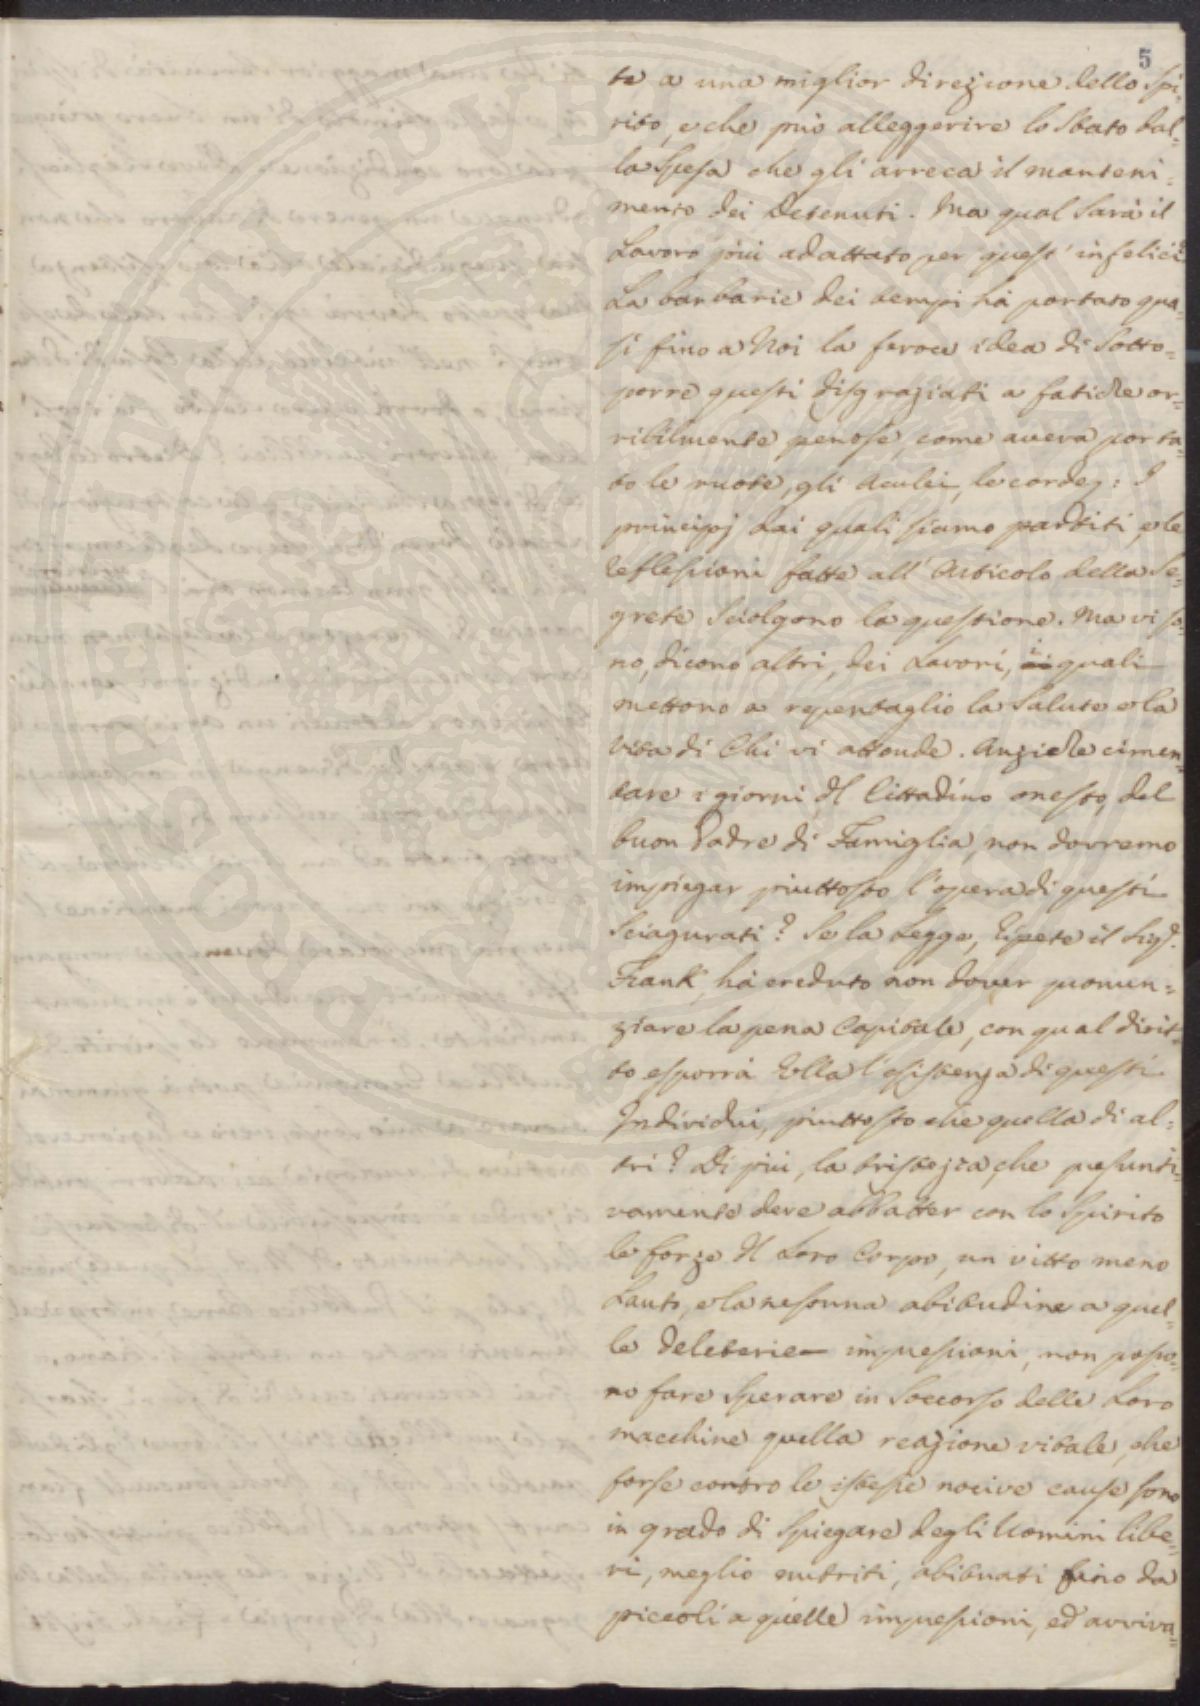 5
te a una miglior direzione dello Spi-
rito, e che può alleggerire lo Stato dal=
la Spesa che gli arreca il manteni=
mento dei Detenuti. Ma qual Sarà il
Lavoro più adattato per quest' infelici?
La barbarie dei tempi hà portato qua=
si fino a Noi la feroce idea di Sotto=
porre questi disgraziati a fatiche or=
ribilmente penose, come aveva porta=
to le ruote, gli Aculei, le corde: I
principj dai quali siamo partiti, e le
reflessioni fatte all' Articolo della Se=
grete Sciolgono la questione. Ma vi so=
no, dicono altri, dei Lavori, i quali
mettono a repentaglio la Salute e la
Vita di Chi vi attende. Anziche cimen=
tare i giorni del Cittadino onesto, del
buon Padre di Famiglia, non dovremo
impiegar piuttosto l'opera di questi
Sciagurati? Se la Legge, ripete il Sig.
Frank, hà creduto non dover pronun=
ziare la pena Capitale, con qual dirit=
to esporrà Ella l'esistenza di questi
Individui, piuttosto che quella di al=
tri? Di più, la tristezza, che presunti=
vamente deve abbatter con lo Spirito
le forze del Loro Corpo, un vitto meno
Lauto, e la nessuna abitudine a quel=
le deleterie impressioni, non posso=
no fare Sperare in Soccorso delle Loro
macchine quella reazione vitale, che
forse contro le istesse nocive cause sono
in grado di Spiegare degli Uomini libe=
ri, meglio nutriti, abituati fino da
piccoli a quelle impressioni, ed avviva=